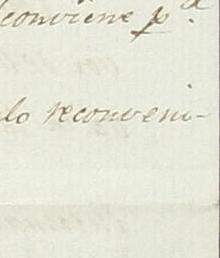 conviene p.ª
lo reconveni-